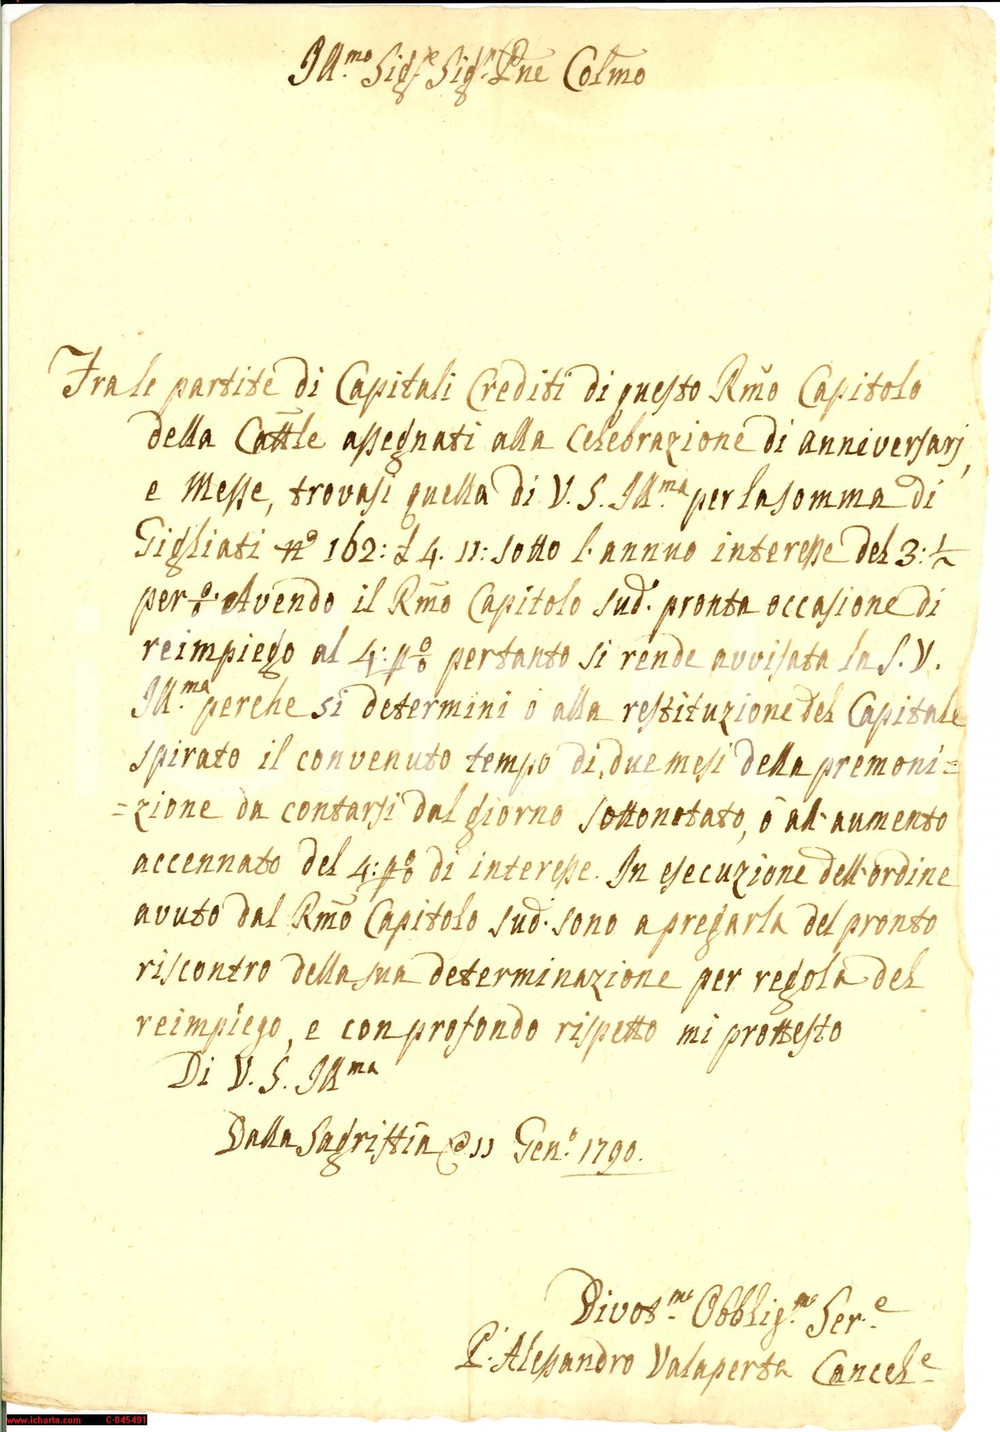 Ill.mo Sig.e Sig.r Pne Colmo
Fra le partite di Capitali Crediti di questo Rmo Capitolo
della Cattle assegnati alla Celebrazione di anniversarj,
e Messe, trovasi quella di V. S. Ill.ma per la somma di
Gigliati no 162: £ 4. 11: sotto l'annuo interesse del 3: 1/2
per %. Avendo il Rmo Capitolo sud.o pronta occasione di
reimpiego al 4: p% pertanto si rende avvisata la S. V.
Ill.ma perche si determini ò alla restituzione del Capitale
spirato il convenuto tempo di due mesi della premoni=
=zione da contarsi dal giorno sottonotato, ò al aumento
accennato del 4: p% di interesse. In esecuzione dell'ordine
avuto dal Rmo Capitolo sud.o sono a pregarla del pronto
riscontro della sua determinazione per regola del
reimpiego, e con profondo rispetto mi prottesto
Di V. S. Ill.ma
Dalla Sagristia @ 11 Gen.o 1790.
Divot.mo Obblig.mo Ser.e
P. Alessandro Valaperta Cancel.e
www.icharta.com C-045491